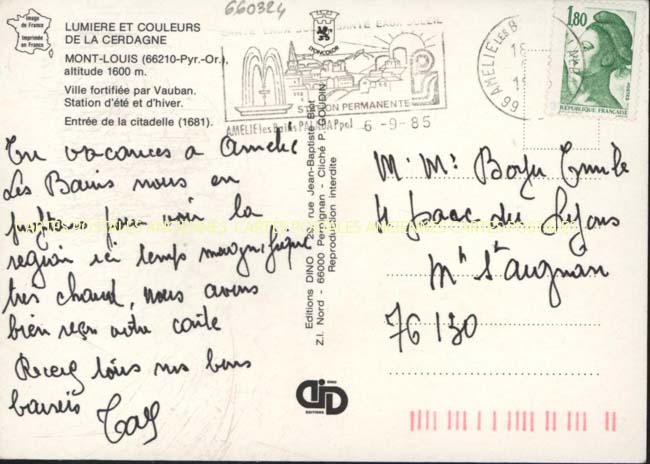 660324
Image de France
Imprimée en France
LUMIERE ET COULEURS
DE LA CERDAGNE
MONT-LOUIS (66210-Pyr.-Or.),
altitude 1600 m.
Ville fortifiée par Vauban.
Station d'été et d'hiver.
Entrée de la citadelle (1681).
En vacances a Amélie
Les Bains nous en
profitons pour voir la
region ici temps magnifique
tres chaud, nous avons
bien reçu votre carte
Recevez tous nos bons
baisers
LYONCOLOR
EAUX SOLEIL
STATION PERMANENTE
AMELIE les Bains PALALDA
6-9-85
66 AMELIE LES B
18
1,80
REPUBLIQUE FRANÇAISE
Editions DINO - 232, rue Jean-Baptiste Biot
Z.I. Nord - 66000 Perpignan - Cliché P. GOUDIN
Reproduction interdite
M. Mme
4
du
Mt St Aignan
76130
DINO
EDITIONS
CARTES POSTALES ANCIENNES CARTES POSTALES ANCIENNES CARTES POSTALES